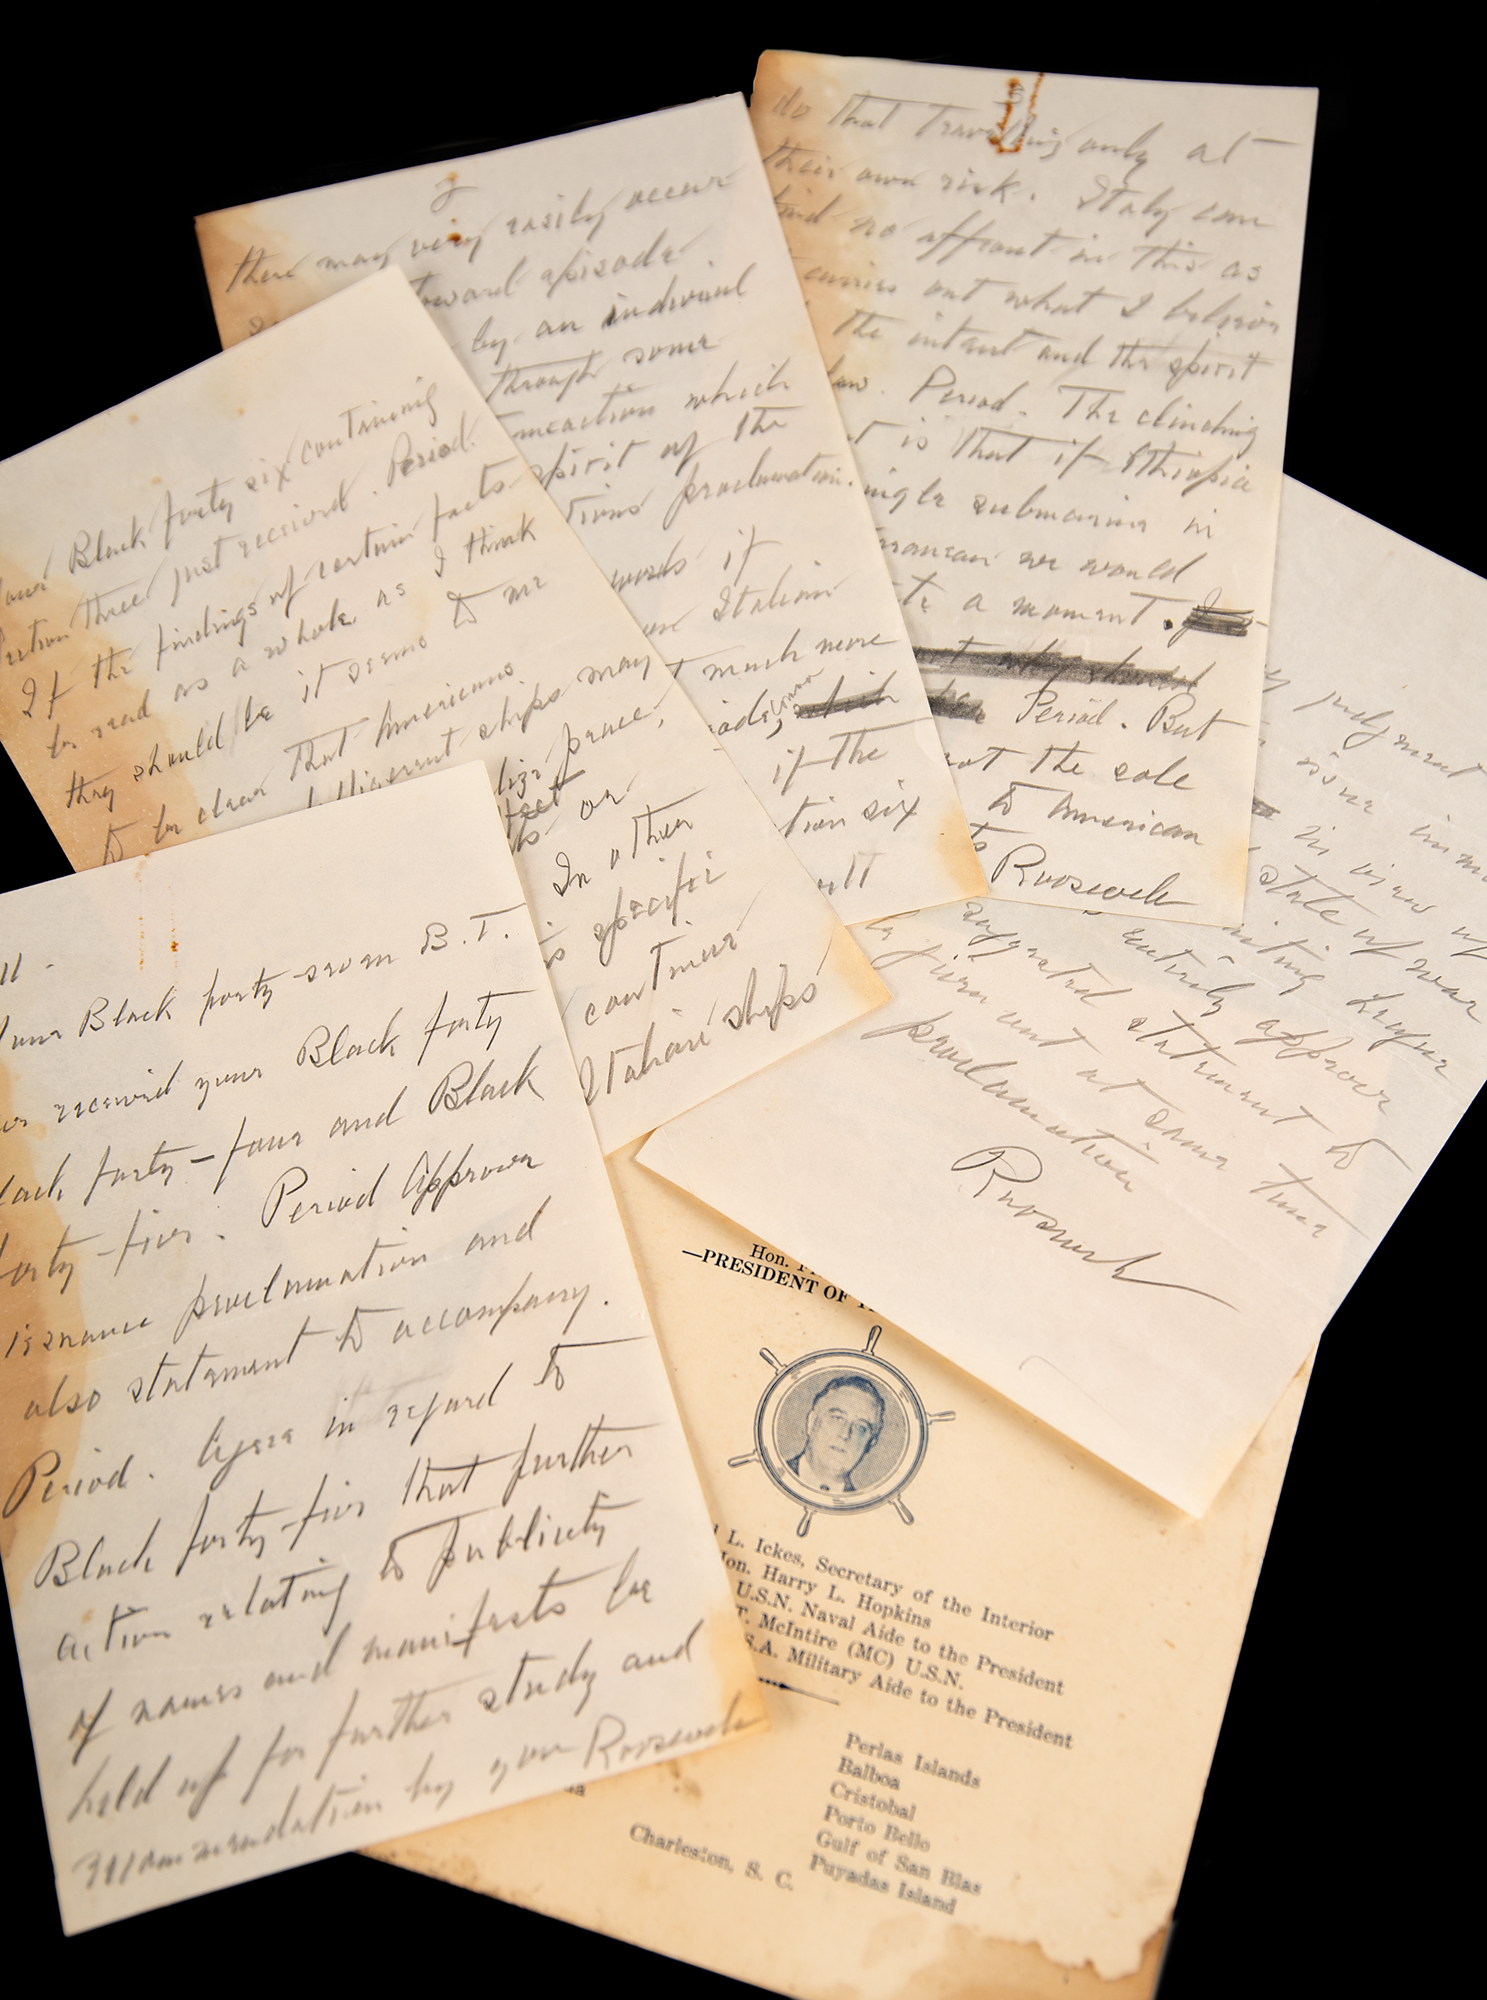 do that travelling only at
their own risk. Italy can
find no affront in this as
carries out what I believe
the intent and the spirit
law. Period. The clinching
is that if Ethiopia
ingle submarine in
rranean we would
a moment.
Period. But
not the sole
to American
Roosevelt
2
there may very easily occur
toward episode
by an individual
through some
transaction which
spirit of the
tions proclamation.
words if
use Italian
much more
if the
tion six
lt
your Black forty six containing
section three just received. Period.
If the findings of certain facts
be read as a whole as I think
they should be it seems to me
to be clear that Americans
belligerent ships may
peace,
or
In other
specific
continue
Italian ships
my judgment
issue imm
in view of
state of war
waiting League
entirely approve
suggested statement to
be given out at same time
proclamation
Roosevelt
11.
Your Black forty-seven B.T.
received your Black forty
Black forty-four and Black
forty-five. Period Approve
issuance proclamation and
also statement to accompany.
Period. Agree in regard to
Black forty-five that further
action relating to publicity
of names and manifests be
held up for further study and
recommendation by you Roosevelt
Hon. Fr
—PRESIDENT OF T
L. Ickes, Secretary of the Interior
Hon. Harry L. Hopkins
U.S.N. Naval Aide to the President
T. McIntire (MC) U.S.N.
S.A. Military Aide to the President
Perlas Islands
Balboa
Cristobal
Porto Bello
Gulf of San Blas
Puyadas Island
Charleston, S. C.